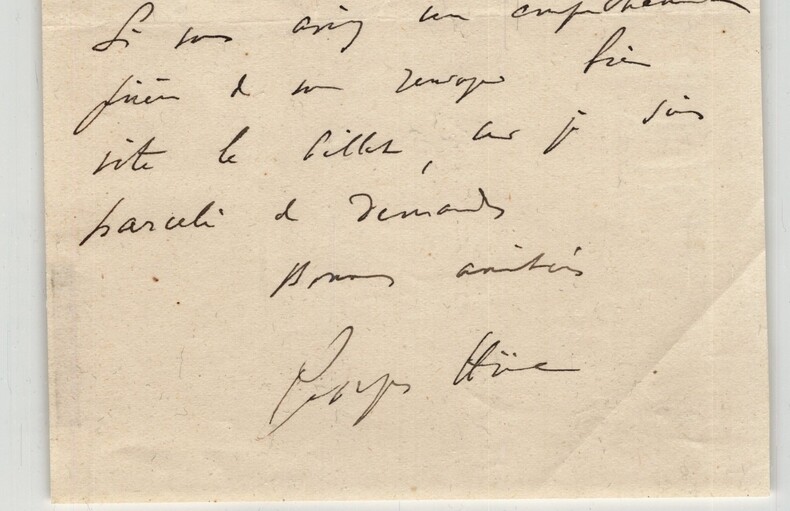 Si vous aviez un empêchement
prière de me renvoyer bien
vite le billet, car je suis
harcelé de demandes
Bonnes amitiés
Georges Hüe